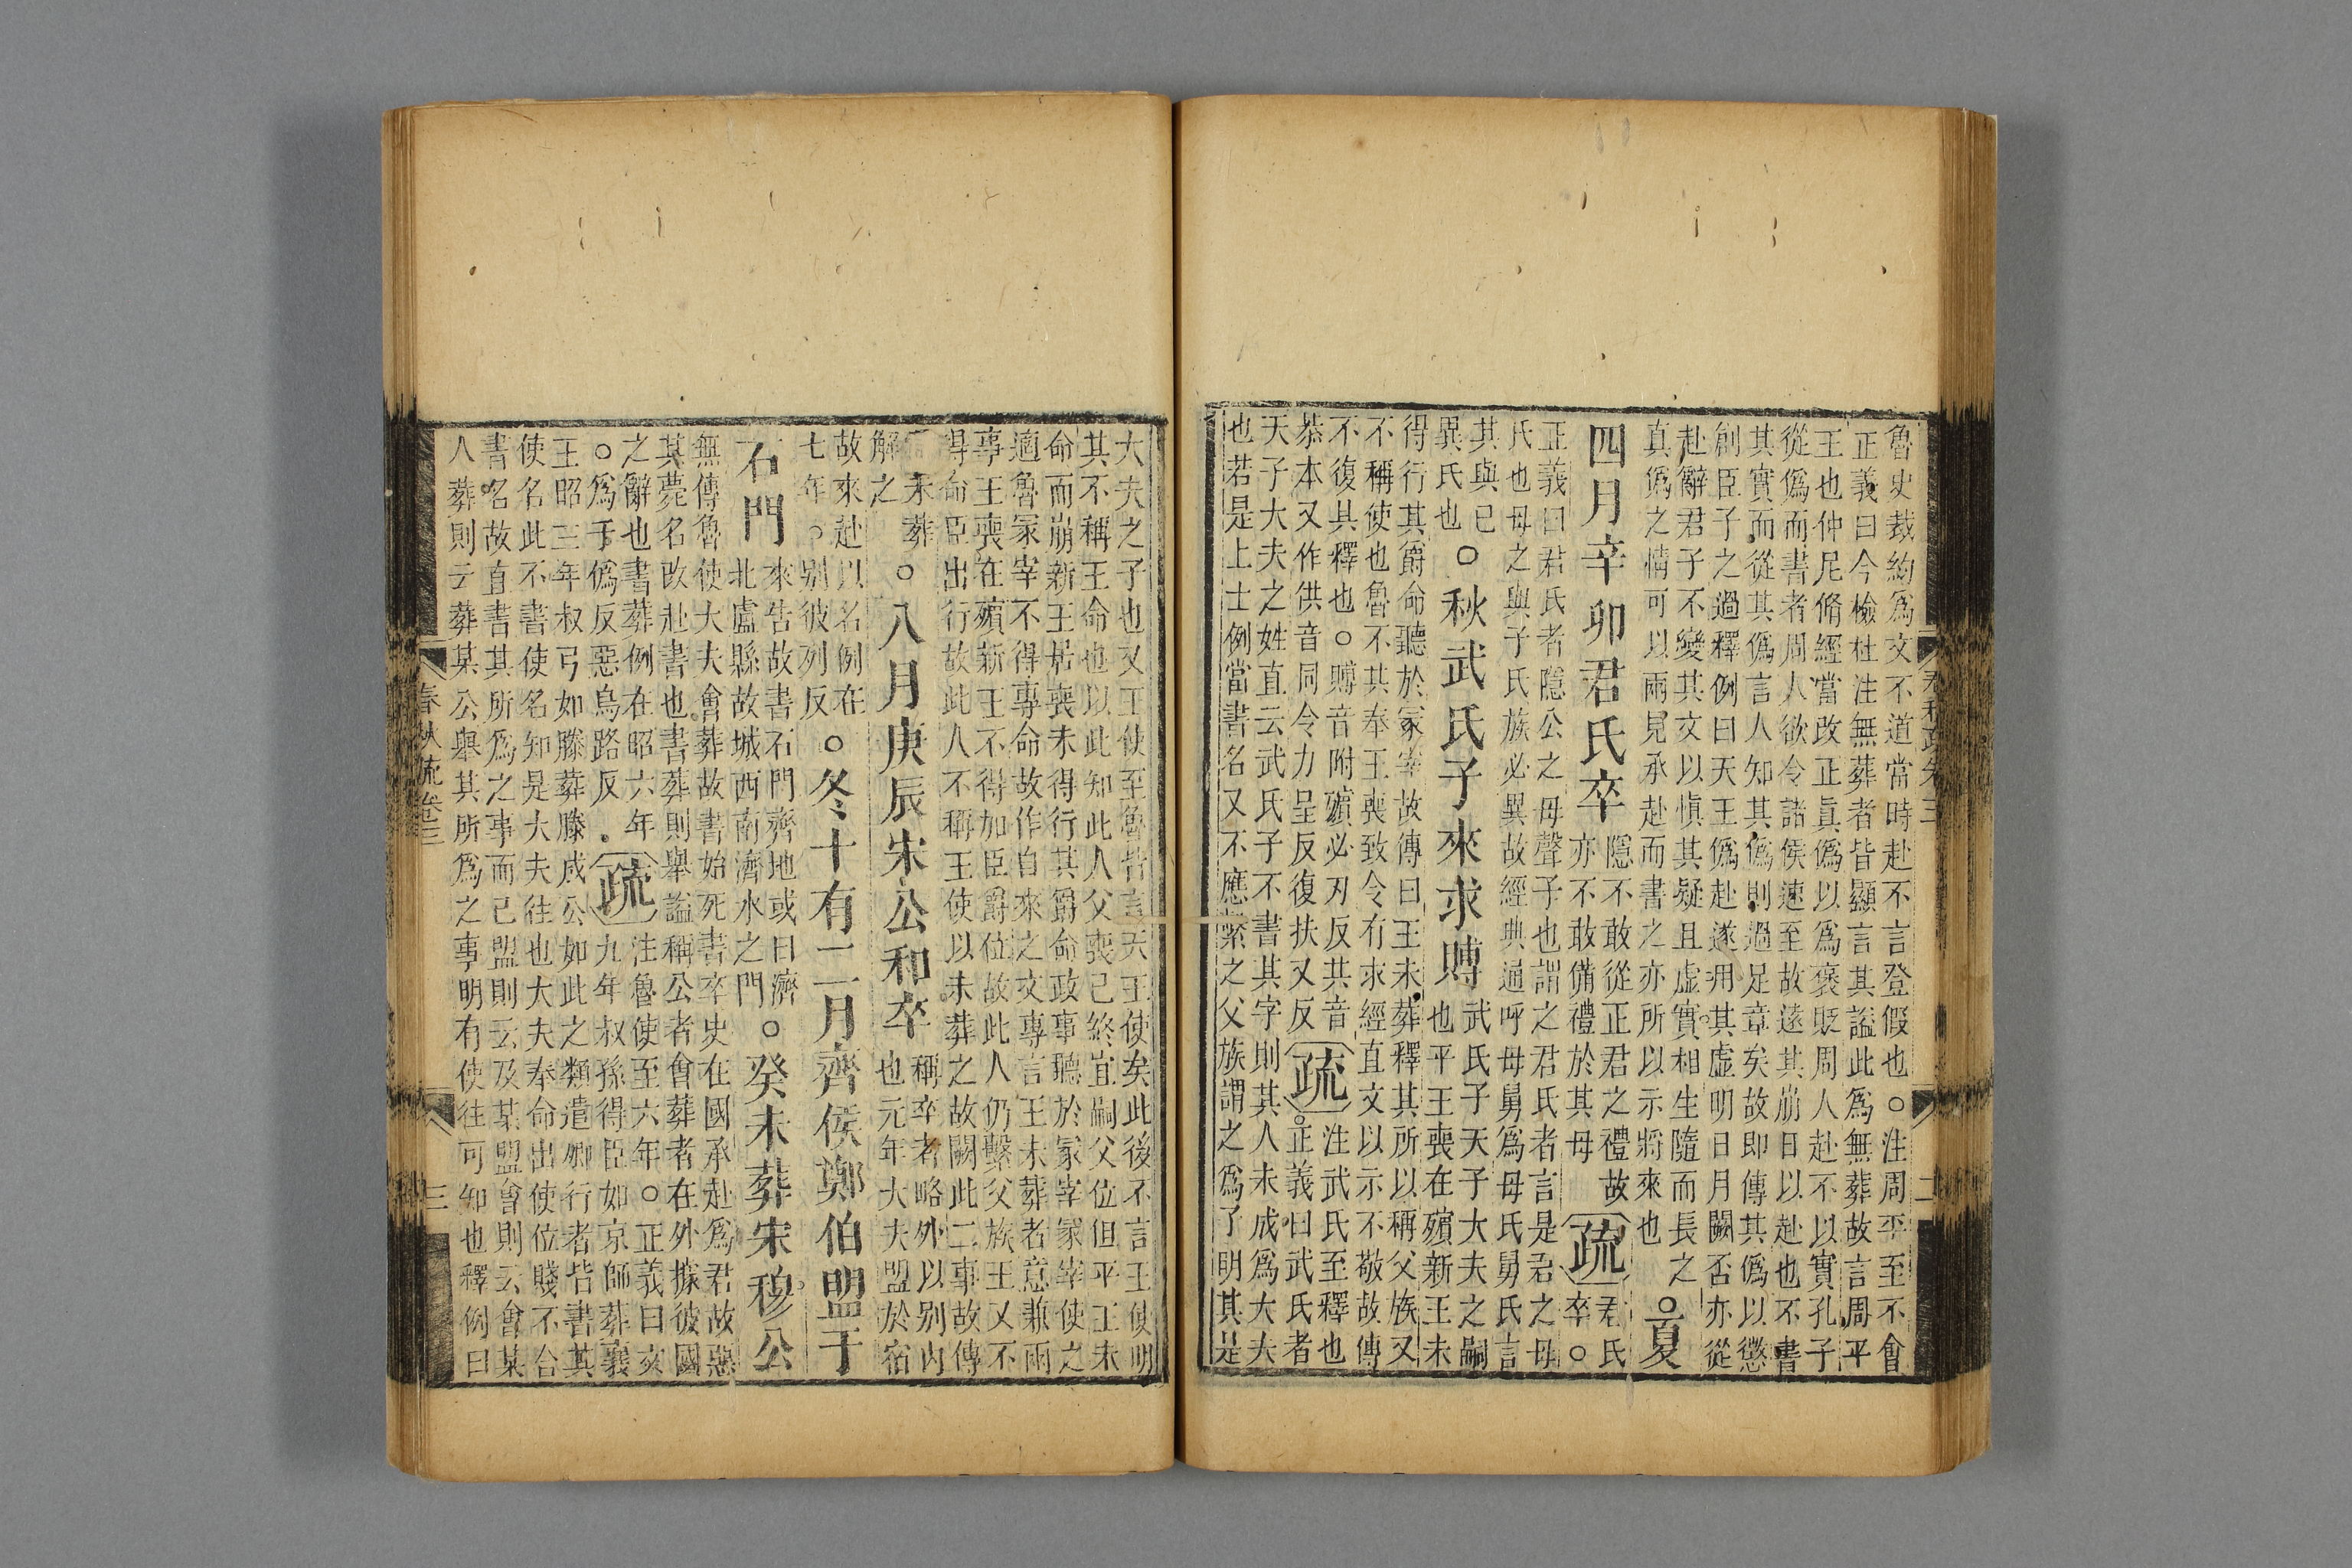 魯史裁約爲文不道當時赴不言登假也○注周平至不會
正義曰今檢杜注無葬者皆顯言其謚此爲無葬故言周平
王也仲尼脩經當改正眞僞以爲褒貶周人赴不以實孔子
從僞而書者周人欲令諸侯速至故遠其崩日以赴也不書
其實而從其僞言人知其僞則過足章矣故即傳其僞以懲
創臣子之過釋例曰天王僞赴遂用其虛明日月闕否亦從
赴辭君子不變其文以愼其疑且虛實相生隨而長之
真僞之情可以兩見承赴而書之亦所以示將來也
○夏
四月辛卯君氏卒
隱不敢從正君之禮故
亦不敢備禮於其母
疏
君氏
卒○
正義曰君氏者隱公之母聲子也謂之君氏者言是君之母
氏也母之與子氏族必異故經典通呼母舅爲母氏舅氏言
其與己
異氏也
○秋武氏子來求賻
武氏子天子大夫之嗣
也平王喪在殯新王未
得行其爵命聽於冢宰故傳曰王未葬釋其所以稱父族又
不稱使也魯不共奉王喪致令有求經直文以示不敬故傳
不復具釋也○賻音附殯必刃反共音
恭本又作供音同令力呈反復扶又反
疏
注武氏至釋也
○正義曰武氏者
天子大夫之姓直云武氏子不書其字則其人未成爲大夫
也若是上士例當書名又不應繫之父族謂之爲子明其是
大夫之子也又王使至魯皆言天王使矣此後不言王使明
其不稱王命也以此知此人父喪已終宜嗣父位但平王未
命而崩新王居喪未得行其爵命政事聽於冢宰冢宰使之
適魯冢宰不得專命故作自來之文專言王未葬者意兼兩
事王喪在殯新王不得加臣爵位故此人仍繫父族王又不
得命臣出行故此人不稱王使以未葬之故闕此二事故傳
未葬
解之
○八月庚辰宋公和卒
稱卒者略外以別內
也元年大夫盟於宿
故來赴以名例在
七年○別彼列反
○冬十有二月齊侯鄭伯盟于
石門
來告故書石門齊地或曰濟
北盧縣故城西南濟水之門
○癸未葬宋穆公
無傳魯使大夫會葬故書始死書卒史在國承赴爲君故惡
其薨名改赴書也書葬則舉謚稱公者會葬者在外據彼國
之辭也書葬例在昭六年
○爲于僞反惡烏路反
疏
注魯使至六年○正義曰亥
九年叔孫得臣如京師葬襄
王昭三年叔弓如滕葬滕成公如此之類遣卿行者皆書其
使名此不書使名知是大夫往也大夫奉命出使位賤不合
書名故直書其所爲之事而已盟則云及某盟會則云會某
人葬則云葬某公舉其所爲之事明有使往可知也釋例曰
春秋疏卷三
三